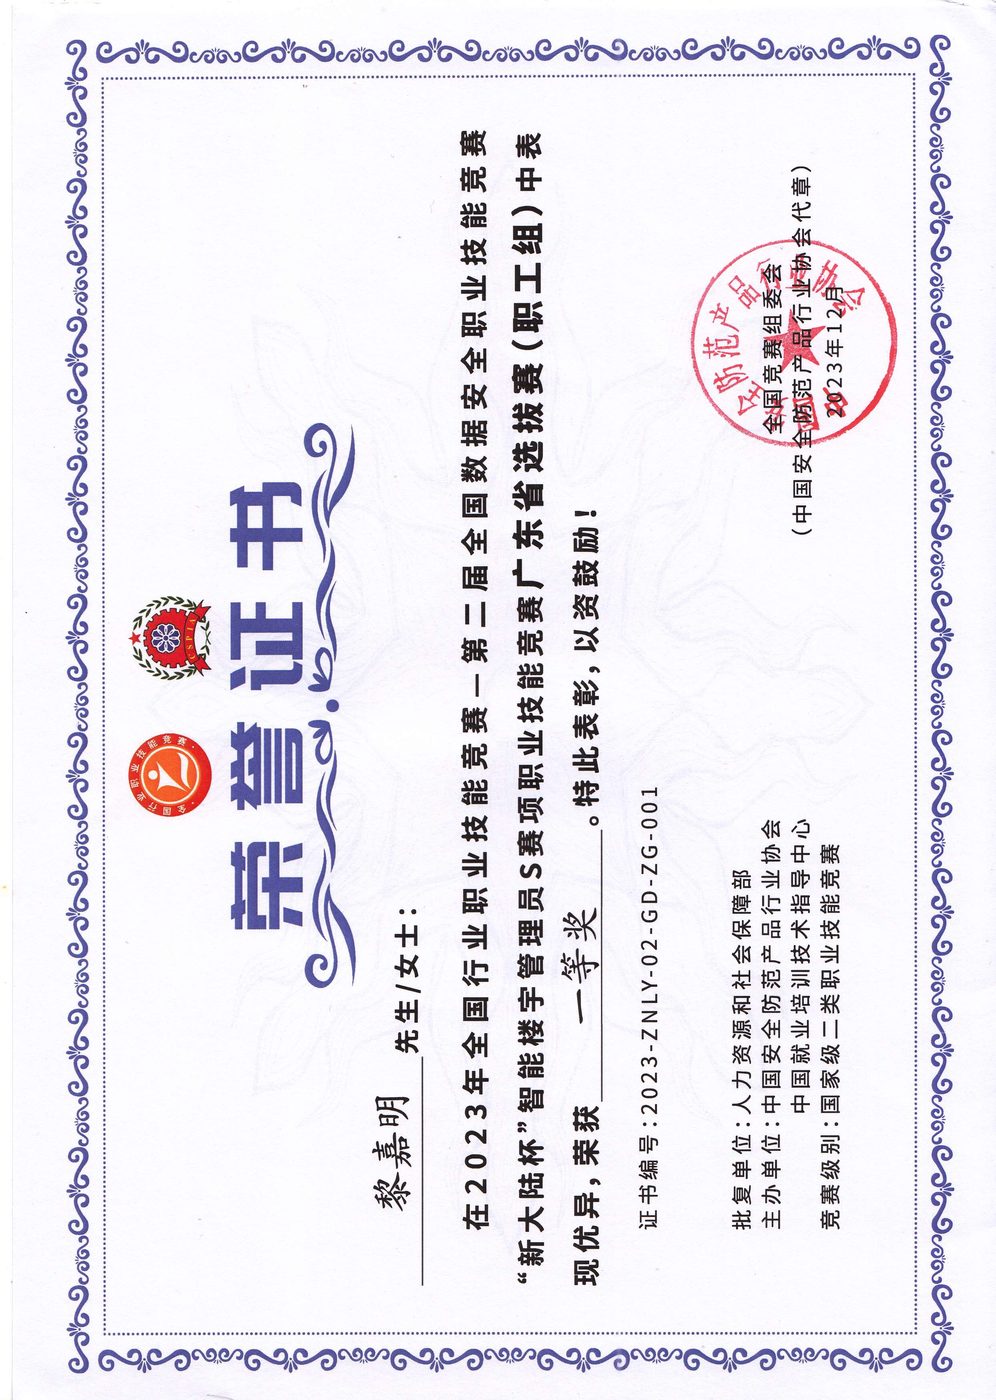 全国行业职业技能竞赛
CSPIA
荣誉证书
黎嘉明 先生/女士：
在2023年全国行业职业技能竞赛—第二届全国数据安全职业技能竞赛
“新大陆杯”智能楼宇管理员S赛项职业技能竞赛广东省选拔赛（职工组）中表
现优异，荣获 一等奖 。特此表彰，以资鼓励！
证书编号：2023-ZNLY-02-GD-ZG-001
批复单位：人力资源和社会保障部
主办单位：中国安全防范产品行业协会
中国就业培训技术指导中心
竞赛级别：国家级二类职业技能竞赛
全国竞赛组委会
（中国安全防范产品行业协会代章）
2023年12月
中国安全防范产品行业协会